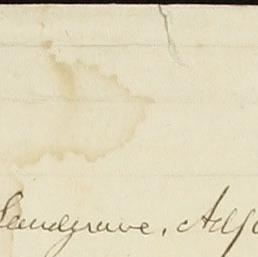 Landgrave, Adf